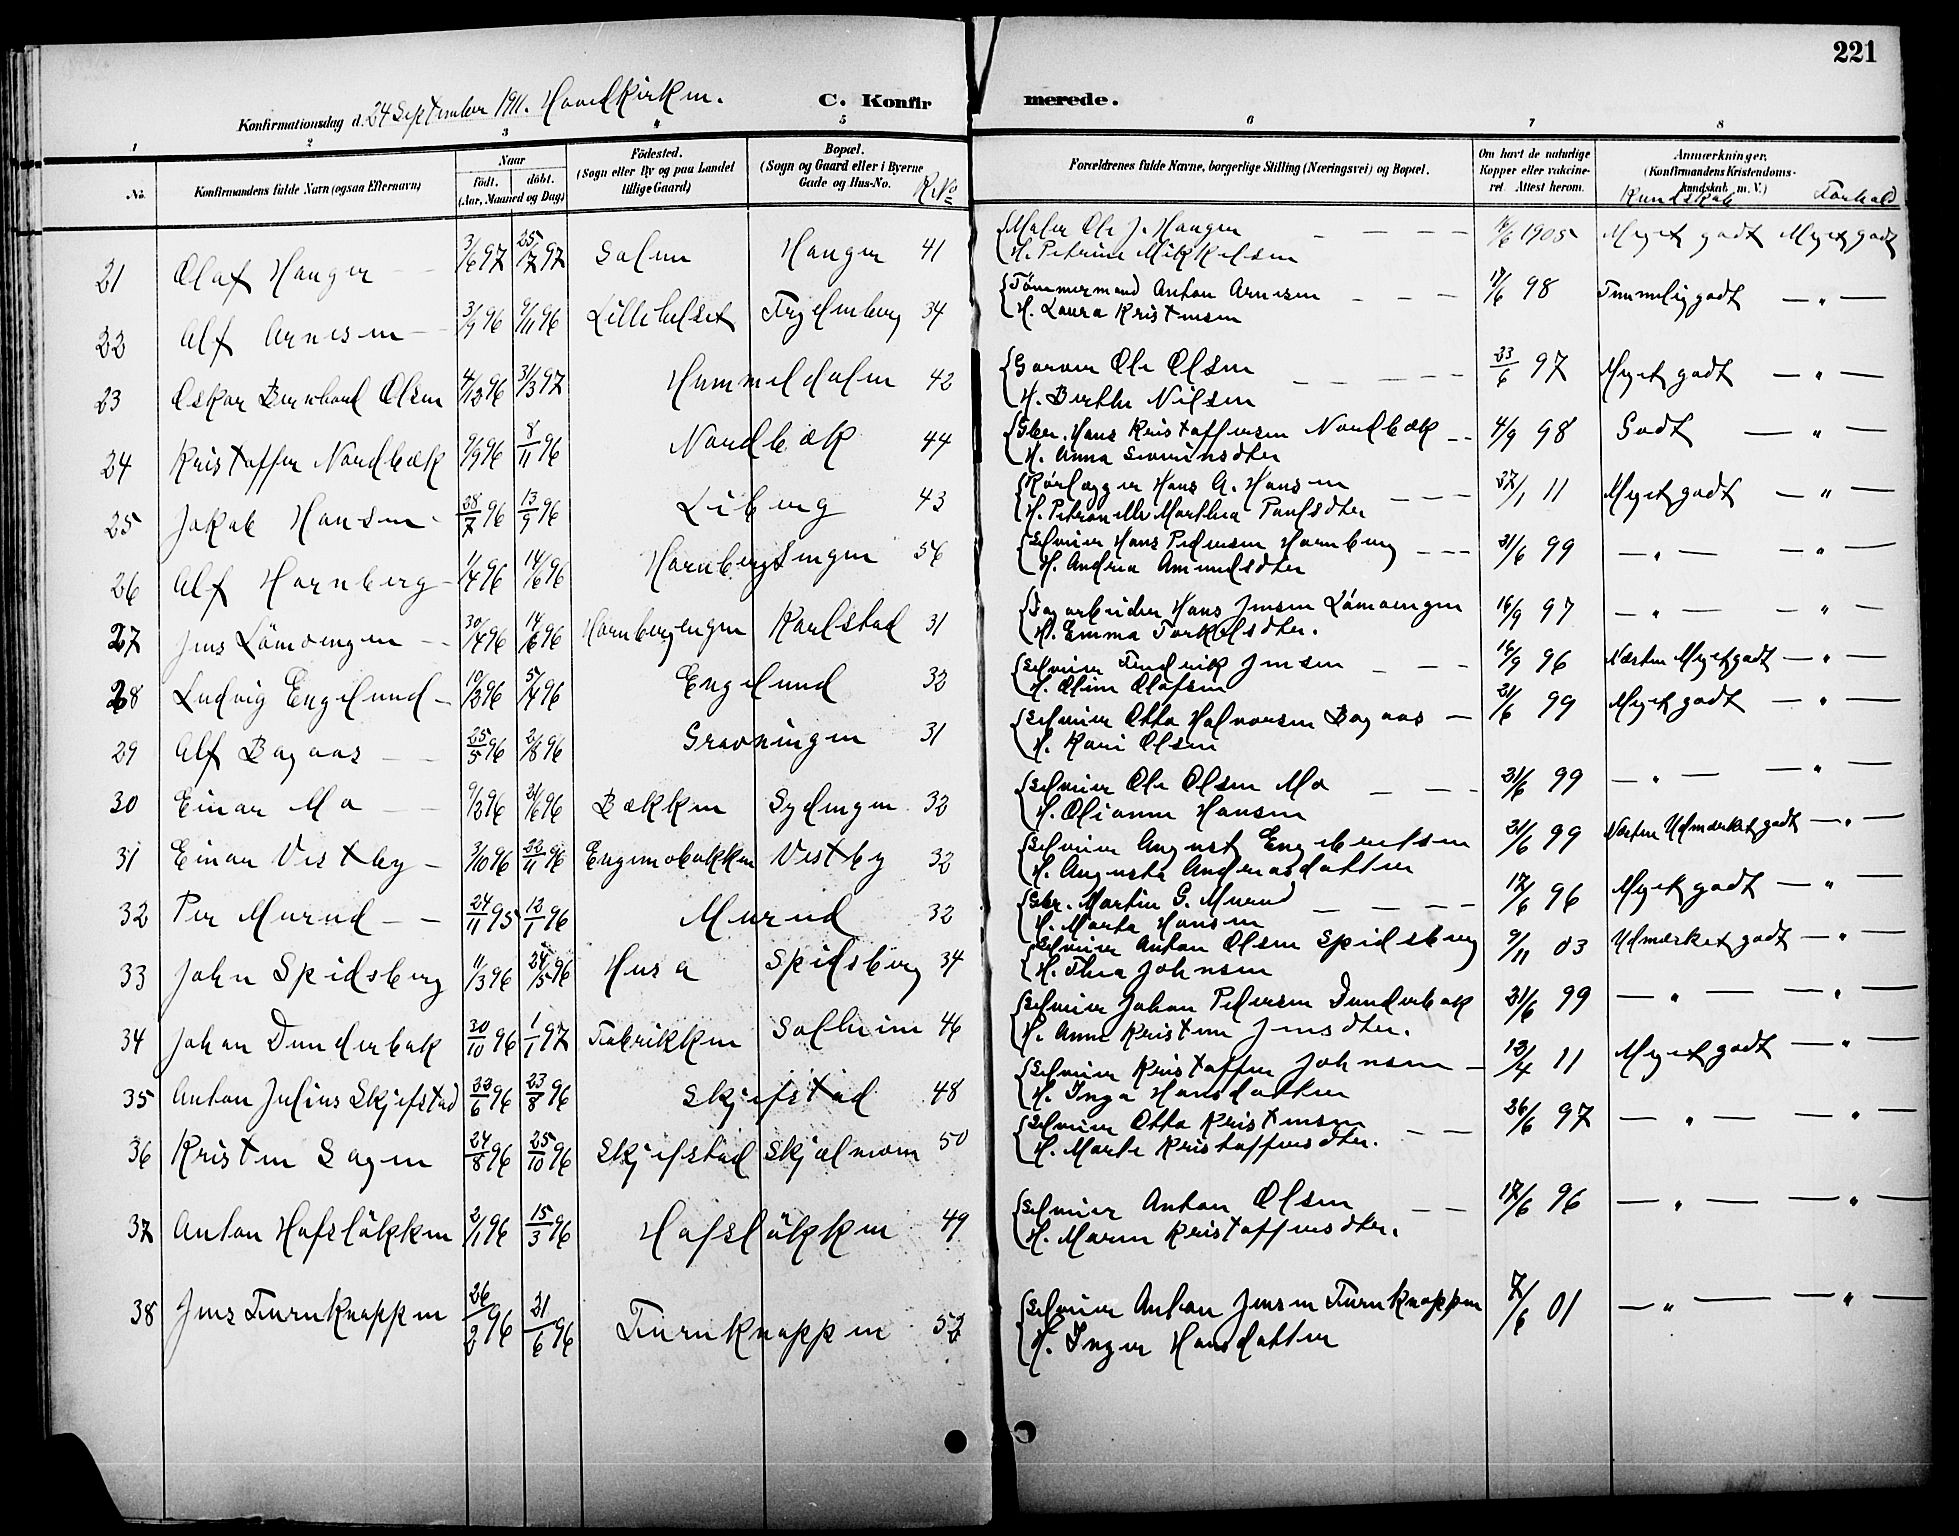 221
Konfirmationsdag d. 24 September 1911. Hovedkirken. C. Konfirmerede.
1 2 3 4 5 6 7 8
No. Konfirmandens fulde Navn (ogsaa Efternavn) Naar født. døbt. (Aar, Maaned og Dag) Fødested. (Sogn eller By og paa Landet tillige Gaard) Bopæl. (Sogn og Gaard eller i Byerne Gade og Hus-No. Forældrenes fulde Navne, borgerlige Stilling (Næringsvei) og Bopæl. Om havt de naturlige Kopper eller vaccineret. Attest herom. Anmærkninger. (Konfirmandens Kristendomskundskab m. V.) Kundskab Forhold
21 Olaf Haugen 3/6 97 25/7 97 Solum Haugen 41 Maler Ole J. Haugen 1905 Meget godt Meget godt
H. Petrine Mikkelsen
22 Alf Arnesen 3/9 96 9/11 96 Lillehelset Frydenberg 34 Tømmermand Anton Arnesen 17/6 98 Temmelig godt — " —
H. Laura Kristensen
23 Oskar Bernhard Olsen 4/12 96 31/3 97 Hummeldalen 42 Garver Ole Olsen 23/6 97 Meget godt — " —
H. Berthe Nilsen
24 Kristoffer Nordbæk 9/9 96 8/11 96 Nordbæk 44 Gbr. Hans Kristoffersen Nordbæk 4/9 98 Godt — " —
H. Anna Severinsdter
25 Jakob Hansen 28/7 96 13/9 96 Liberg 43 Rørlægger Hans A. Hansen 27/1 11 Meget godt — " —
H. Petronelle Marthea Paulsdter
26 Alf Hornberg 1/4 96 14/6 96 Hornbergsengen 56 Selveier Hans Pedersen Hornberg 21/6 99 — " — — " —
H. Andrea Amundsdter
27 Jens Lømoengen 30/4 96 14/6 96 Hornbergengen Karlstad 31 Dagarbeider Hans Jensen Lømoengen 16/9 97 — " — — " —
H. Emma Torkelsdter.
28 Ludvig Engelund 10/2 96 5/4 96 Engelund 32 Selveier Fredrik Jensen 16/9 96 Næsten Meget godt — " —
H. Oline Olafsen
29 Alf Bagaas 25/5 96 2/8 96 Gravningen 31 Selveier Otto Halvorsen Bagaas 21/6 99 Meget godt — " —
H. Kari Olsen
30 Einar Mo 9/2 96 21/6 96 Bækken Sydengen 32 Selveier Ole Olsen Mo 21/6 99 — " — — " —
H. Olianne Hansen
31 Einar Vestby 3/10 96 22/11 96 Engemobakken Vestby 32 Selveier August Engebretsen 21/6 99 Næsten Udmærket godt — " —
H. Augusta Andreasdatter
32 Per Murud 24/11 95 12/1 96 Murud 32 Gbr. Martin G. Murud 17/6 96 Meget godt — " —
H. Marta Hansen
33 John Spidsberg 11/3 96 24/5 96 Husa Spidsberg 34 Selveier Anton Olsen Spidsberg 9/11 03 Udmærket godt — " —
H. Thea Johnsen
34 Johan Dunderbak 30/10 96 1/1 97 Fabrikken Solheim 46 Selveier Johan Pedersen Dunderbak 21/6 99 — " — — " —
H. Anne Kristine Jensdter.
35 Anton Julius Skjefstad 22/6 96 23/8 96 Skjefstad 48 Selveier Kristoffer Johnsen 12/4 11 Meget godt — " —
H. Inga Hansdatter
36 Kristen Sagen 24/8 96 25/10 96 Skjefstad Skjælmoen 50 Selveier Otto Kristensen 26/6 97 — " — — " —
H. Marte Kristoffersdter.
37 Anton Hofsløkken 2/1 96 15/3 96 Hofsløkken 49 Selveier Anton Olsen 17/6 96 — " — — " —
H. Maren Kristoffersdter.
38 Jens Furuknappen 26/2 96 21/6 96 Furuknappen Selveier Anton Jensen Furuknappen 7/6 01 — " — — " —
H. Inger Hansdatter